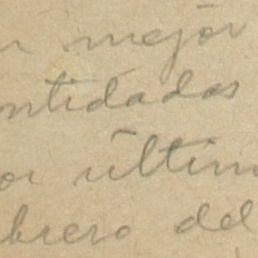 mejor
ntidades
or últim
brero del